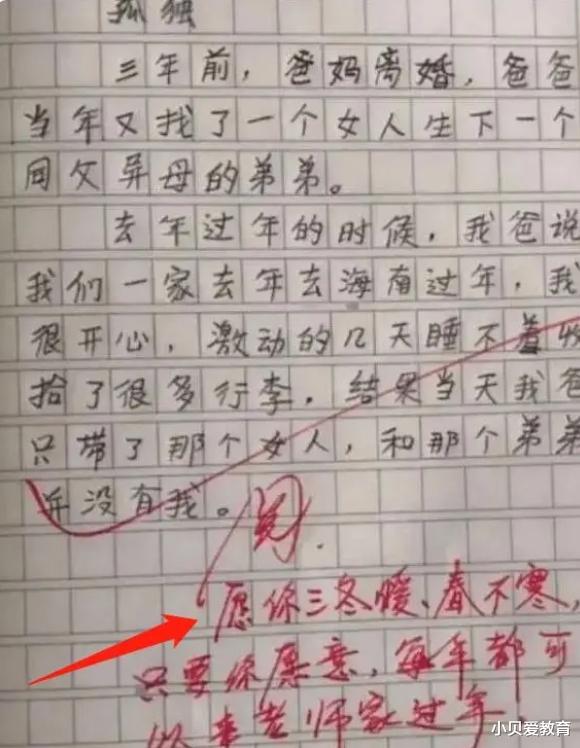 孤独
三年前，爸妈离婚，爸爸
当年又找了一个女人生下一个
同父异母的弟弟。
去年过年的时候，我爸说
我们一家去年去海南过年，我
很开心，激动的几天睡不着收
拾了很多行李，结果当天我爸
只带了那个女人，和那个弟弟
并没有我。
阅.
愿你三冬暖、春不寒，
只要你愿意，每年都可
以来老师家过年
小贝爱教育